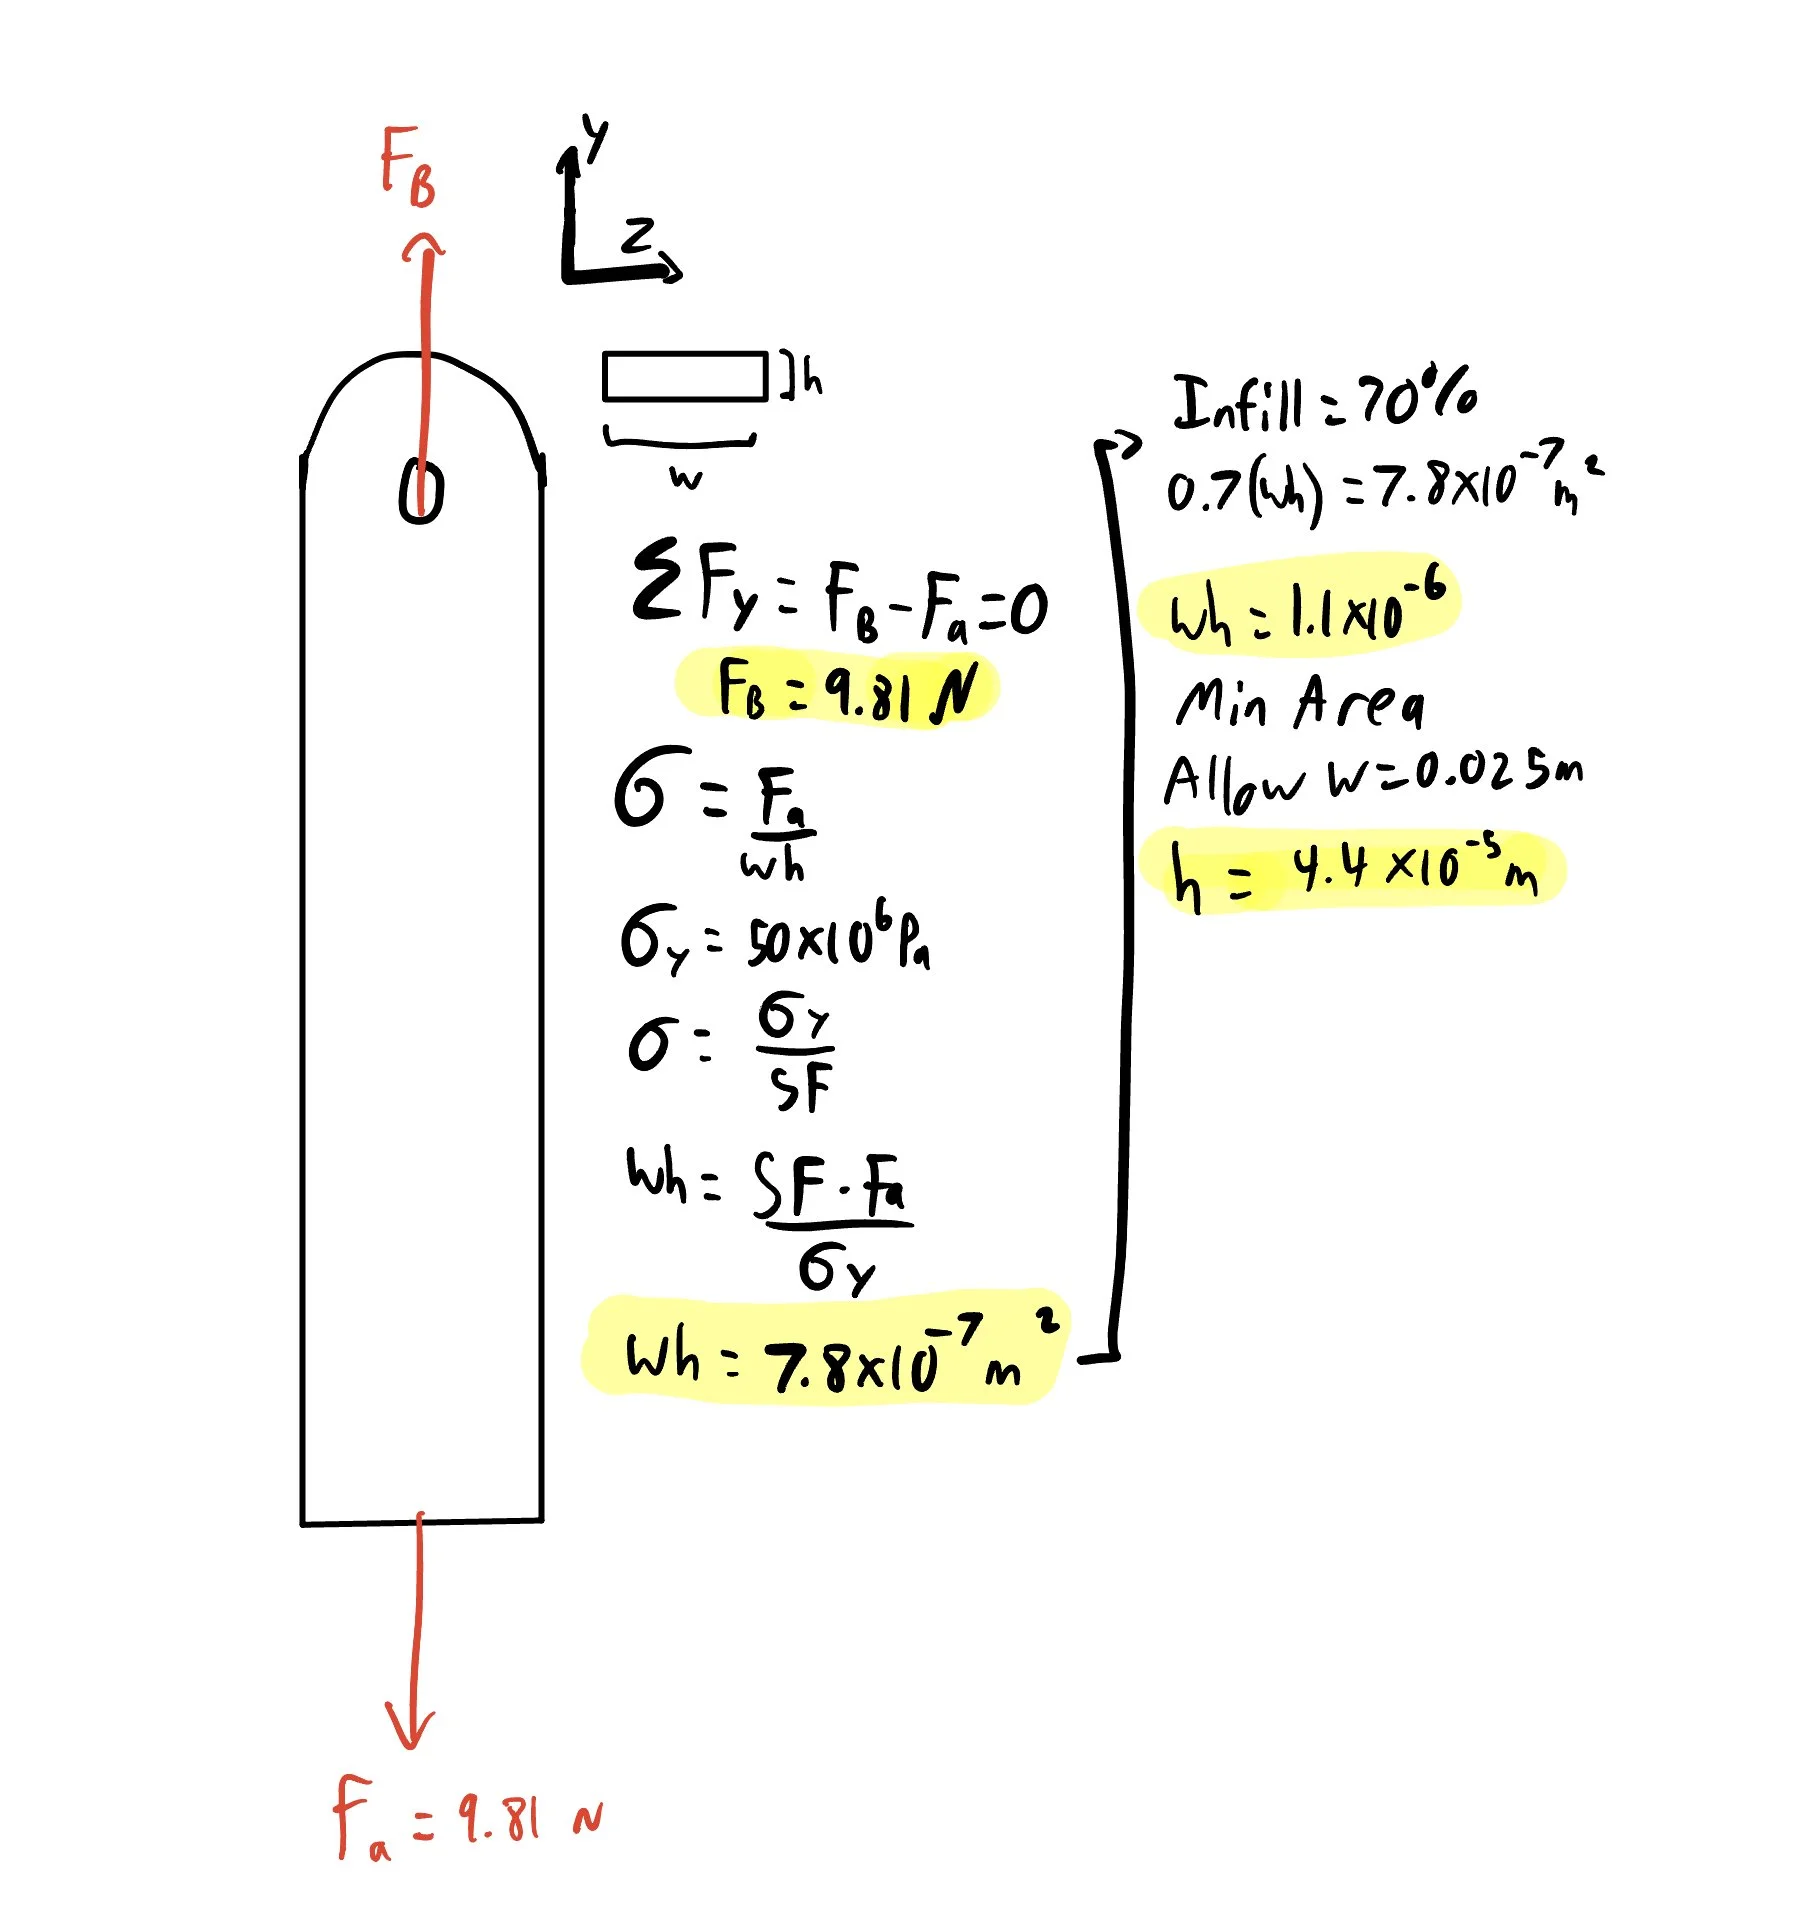 F_B
y
z
h
w
ΣF_y = F_B - F_a = 0
F_B = 9.81 N
σ = F_a / wh
σ_y = 50×10⁶ Pa
σ = σ_y / SF
wh = SF · F_a / σ_y
wh = 7.8×10⁻⁷ m²
F_a = 9.81 N
Infill = 70%
0.7(wh) = 7.8×10⁻⁷ m²
wh = 1.1×10⁻⁶
Min Area
Allow w = 0.025m
h = 4.4×10⁻⁵ m